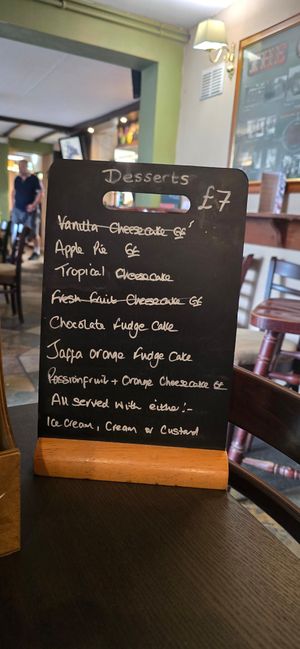 Desserts
£7
Vanilla Cheesecake GF
Apple Pie GF
Tropical Cheesecake
Fresh Fruit Cheesecake GF
Chocolate Fudge Cake
Jaffa Orange Fudge Cake
Passionfruit + Orange Cheesecake GF
All served with either:-
Ice cream, Cream or Custard
THE